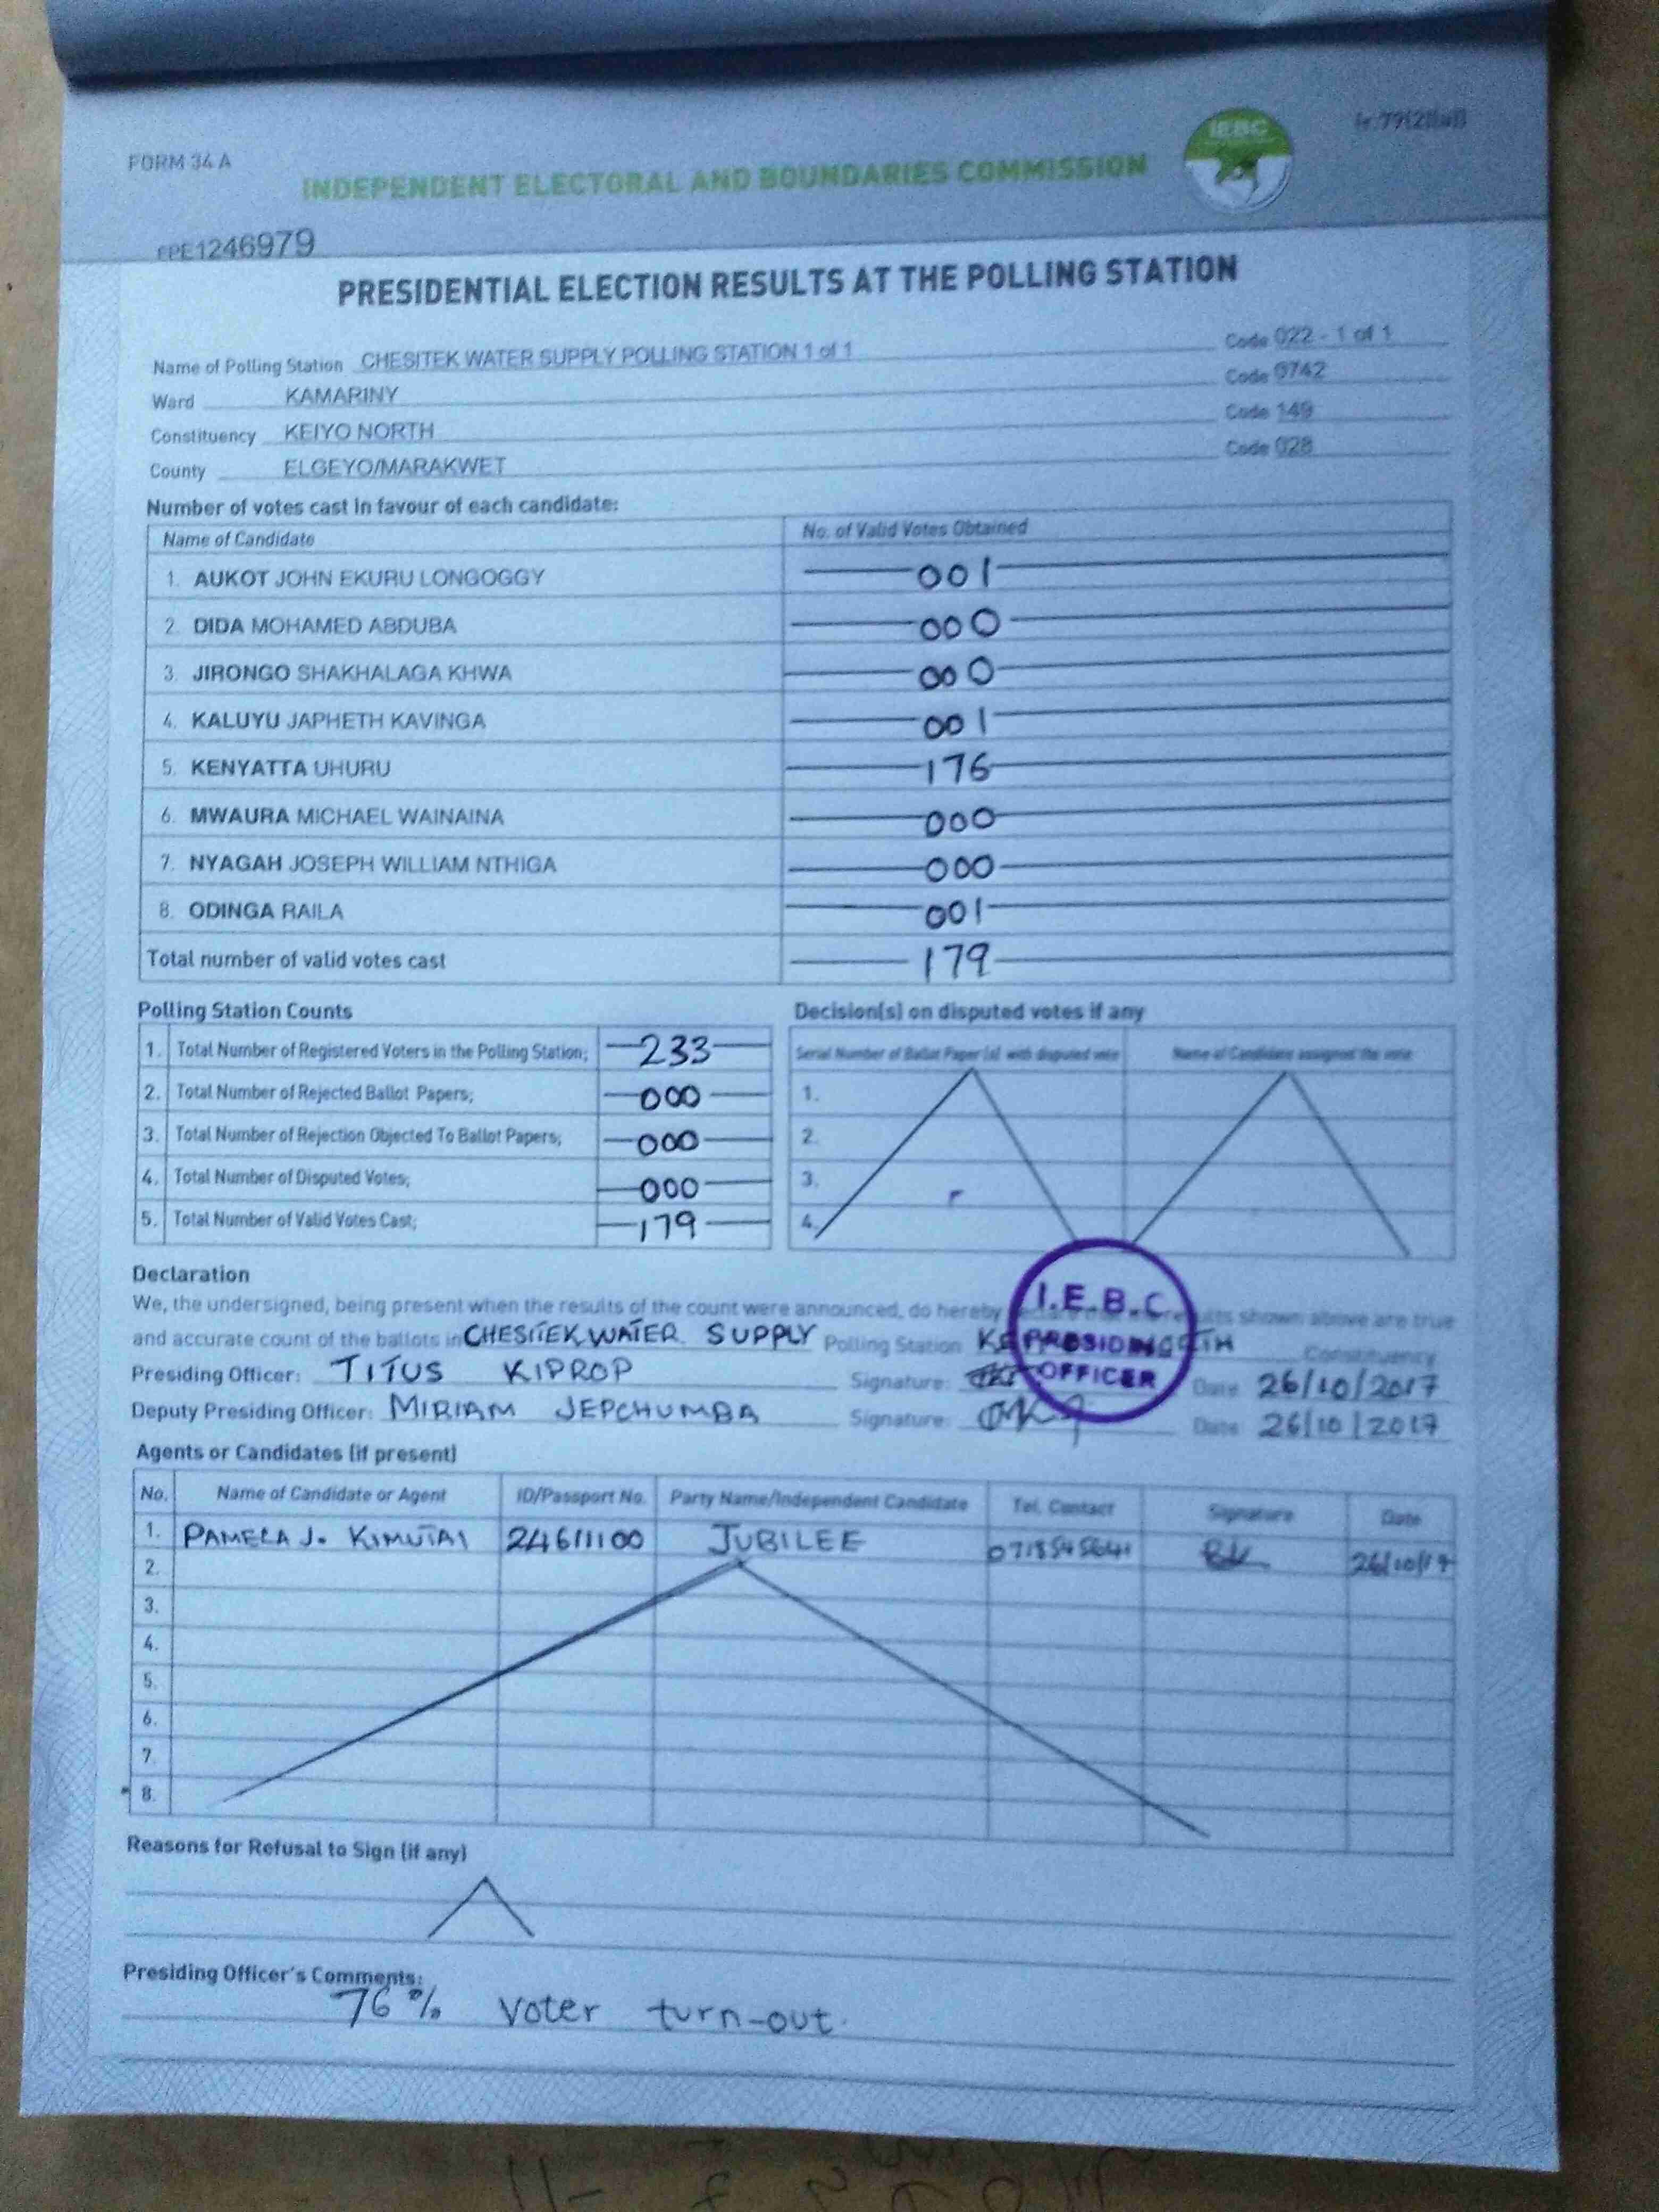 FORM 34 A
IEBC
INDEPENDENT ELECTORAL AND BOUNDARIES COMMISSION
1246979
PRESIDENTIAL ELECTION RESULTS AT THE POLLING STATION
Name of Polling Station CHESITEK WATER SUPPLY POLLING STATION 1 of 1 Code 022 - 1 of 1
Ward KAMARINY Code 0742
Constituency KEIYO NORTH Code 149
County ELGEYO/MARAKWET Code 028
Number of votes cast in favour of each candidate:
Name of Candidate No. of Valid Votes Obtained
1. AUKOT JOHN EKURU LONGOGGY 001
2. DIDA MOHAMED ABDUBA 000
3. JIRONGO SHAKHALAGA KHWA 000
4. KALUYU JAPHETH KAVINGA 001
5. KENYATTA UHURU 176
6. MWAURA MICHAEL WAINAINA 000
7. NYAGAH JOSEPH WILLIAM NTHIGA 000
8. ODINGA RAILA 001
Total number of valid votes cast 179
Polling Station Counts
1. Total Number of Registered Voters in the Polling Station; 233
2. Total Number of Rejected Ballot Papers; 000
3. Total Number of Rejection Objected To Ballot Papers; 000
4. Total Number of Disputed Votes; 000
5. Total Number of Valid Votes Cast; 179
Decision(s) on disputed votes if any
Serial Number of Ballot Paper(s) with disputed vote Name of Candidate assigned the vote
1.
2.
3.
4.
Declaration
We, the undersigned, being present when the results of the count were announced, do hereby results shown above are true
and accurate count of the ballots in CHESITEK WATER SUPPLY Polling Station Constituency
I.E.B.C
PRESIDING
OFFICER
Presiding Officer: TITUS KIPROP Signature: Date 26/10/2017
Deputy Presiding Officer: MIRIAM JEPCHUMBA Signature: Date 26/10/2017
Agents or Candidates (if present)
No. Name of Candidate or Agent ID/Passport No. Party Name/Independent Candidate Tel. Contact Signature Date
1. PAMELA J. KIMUTAI 24611100 JUBILEE 26/10/17
2.
3.
4.
5.
6.
7.
8.
Reasons for Refusal to Sign (if any)
Presiding Officer's Comments:
76% Voter turn-out.